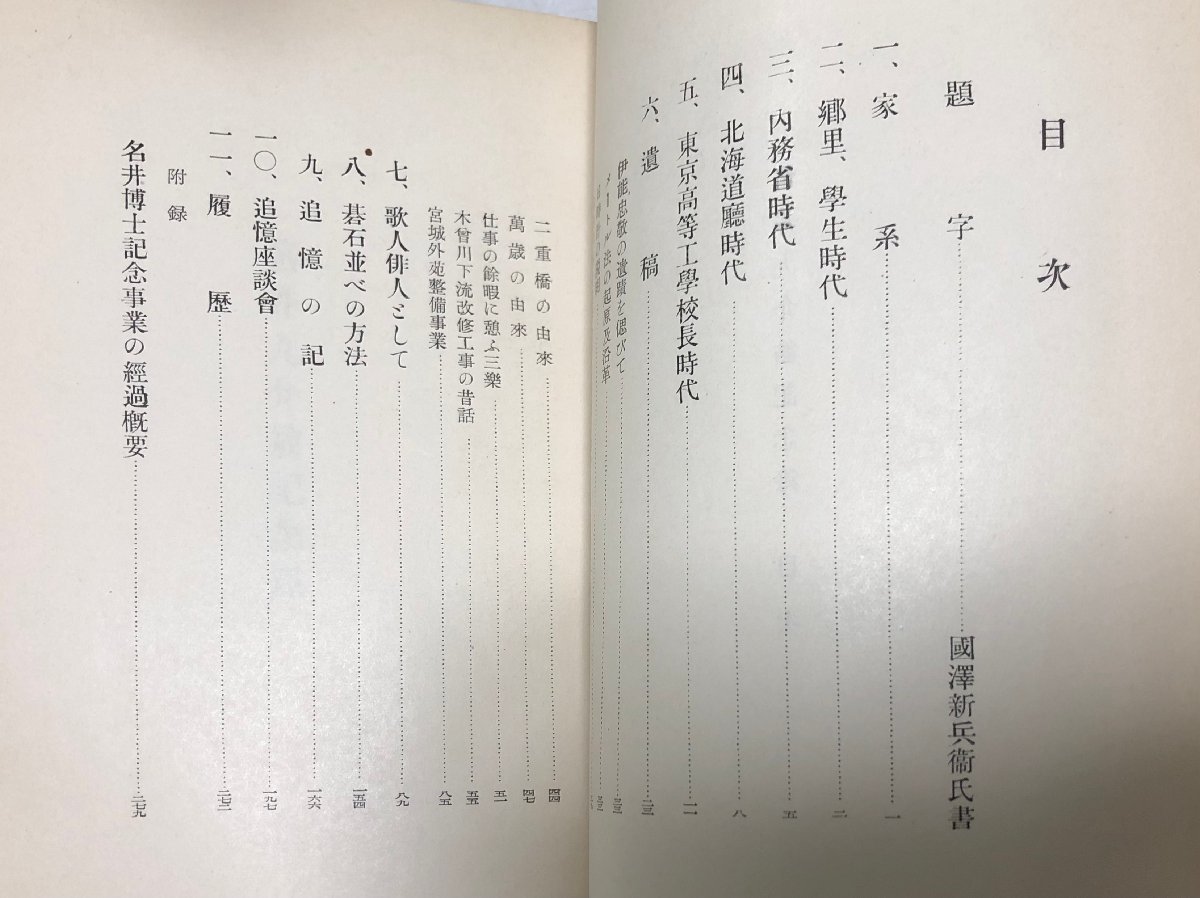 目次
題字……國澤新兵衞氏書
一、家系……一
二、鄕里、學生時代……二
三、內務省時代……五
四、北海道廳時代……八
五、東京高等工學校長時代……一一
六、遺稿……二三
伊能忠敬の遺蹟を偲びて……二三
メートル法の起原及沿革……三三
二重橋の由來……四四
萬歲の由來……四七
仕事の餘暇に憩ふ三樂……五一
木曾川下流改修工事の昔話……五五
宮城外苑整備事業……八五
七、歌人俳人として……八九
八、碁石並べの方法……一五四
九、追憶の記……一六六
一〇、追憶座談會……一九七
一一、履歷……二七二
附錄
名井博士記念事業の經過槪要……二七九